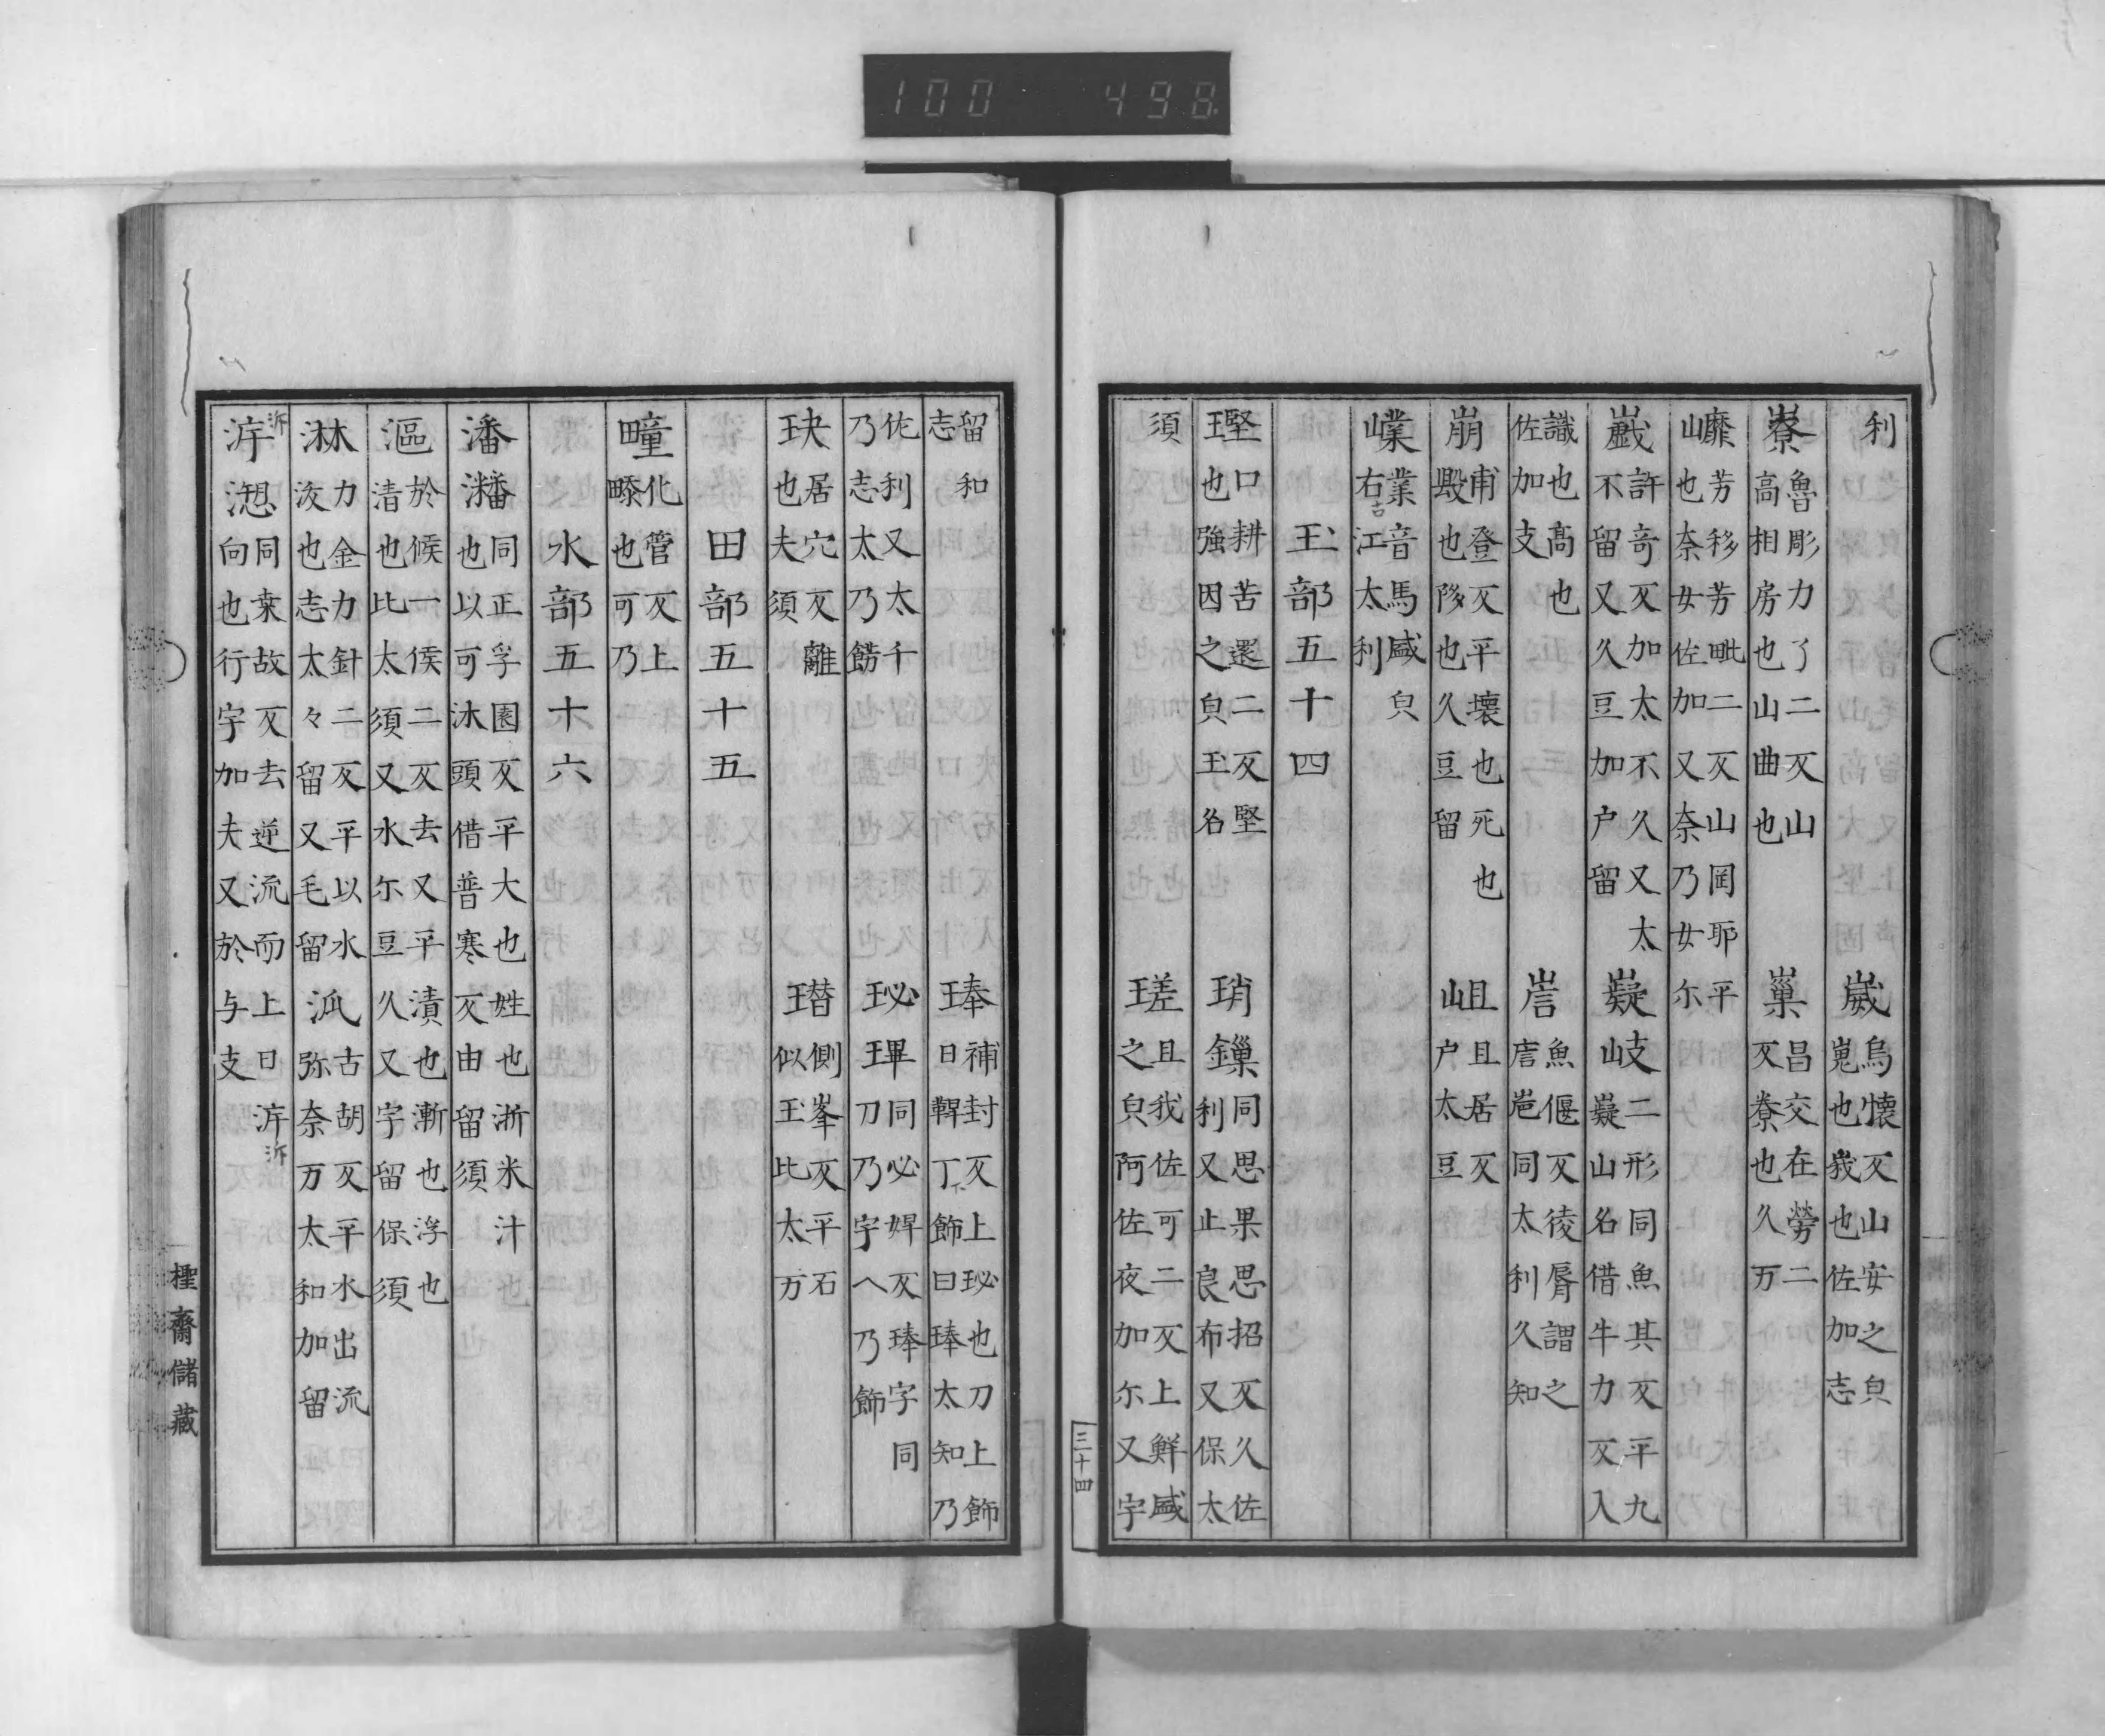 100 498
利
嵗烏懷反山安之皃
嵬也峩也佐加志
嶚魯彫力了二反山
高相房也山曲也
巢昌交在勞二
反嶚也久万
㠧芳移芳毗二反山罡耶平
也奈女佐加又奈乃女尓
巇許竒反加太不久又太
不留又久豆加户留
嶷岐二形同魚其反平九
嶷山名借牛力反入
識也髙也
佐加支
魚偃反㥄脣謂之
同太利久知
崩甫登反平壞也死也
毀也陊也久豆留
岨且居反
户太豆
嶪業音馬盛皃
右吉江太利
玉部五十四
口耕苦還二反堅
也強因之皃玉名
琑鏁同思果思招反久佐
利又止良布又保太
須
瑳且我佐可二反上鮮盛
之皃阿佐夜加尓又宇
留和
志
琫補封反上珌也刀上飾
曰鞞丁下飾曰琫太知乃
佐利又太千
乃志太乃餝
珌琿同必娨反琫字同
刀乃宇八乃飾
玦居穴反離
也夫須
側岑反平石
似玉比太万
田部五十五
畽化管反上
畷也可乃
水部五十六
潘𤄫同正孚園反平大也姓也浙米汁
也以可沐頭借普寒反由留須
漚於候一侯二反去又平漬也漸也浮也
清也比太須又水尓豆久又宇留保須
淋力金力針二反平以水
汷也志太々留又毛留
泒古胡反平水出流
弥奈万太和加留
泝㴑同桒故反去逆流而上曰泝
向也行宇加夫又於与支
三十四
㮚齋儲藏